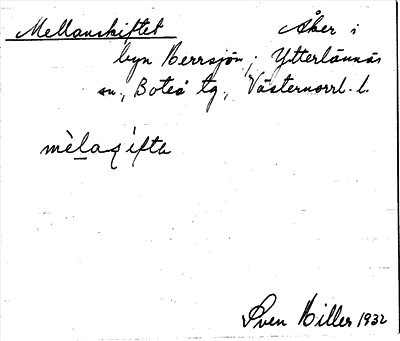 Mellanskiftet Åker i
byn Herrsjön, Ytterlännäs
sn., Boteå tg., Västernorrl. l.
mèlaʂífta
Sven Hiller 1932